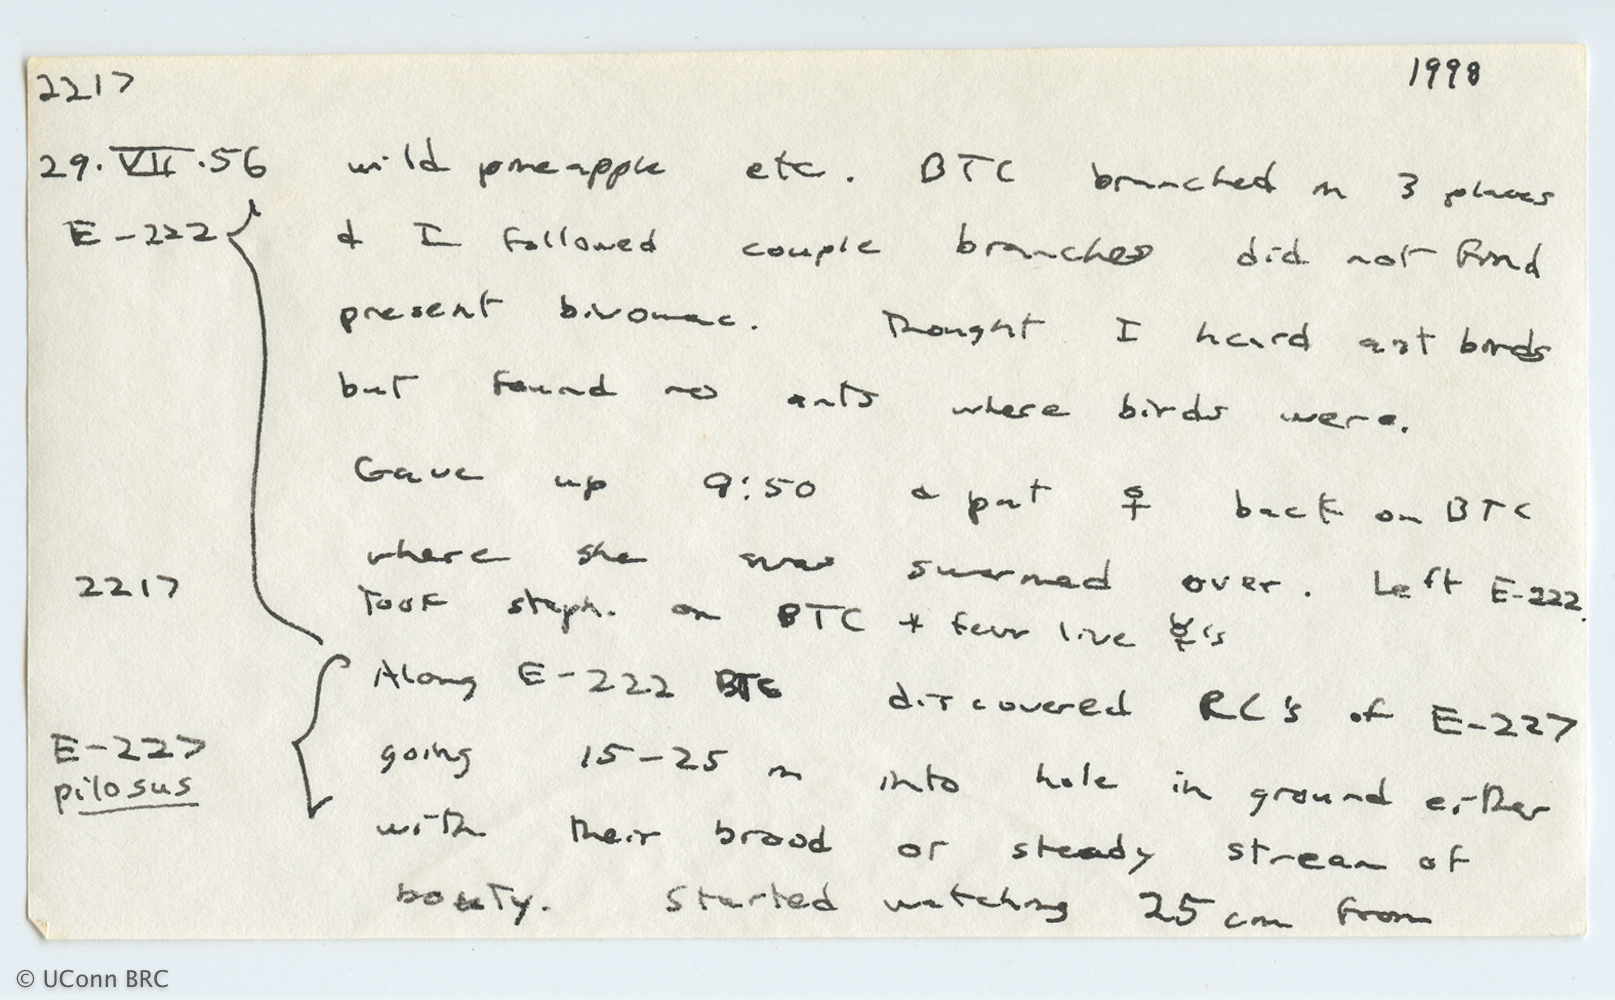 2217
1998
29.VII.56 wild pineapple etc. BTC branched in 3 places
E-222 & I followed couple branches did not find
present bivouac. Thought I heard ant birds
but found no ants where birds were.
Gave up 9:50 & put ♀ back on BTC
where she was swarmed over. Left E-222.
2217 Took staph. on BTC + few live ☿'s
Along E-222 BTC discovered RC's of E-227
E-227 going 15-25 m into hole in ground either
pilosus
with their brood or steady stream of
booty. Started watching 25 cm from
© UConn BRC